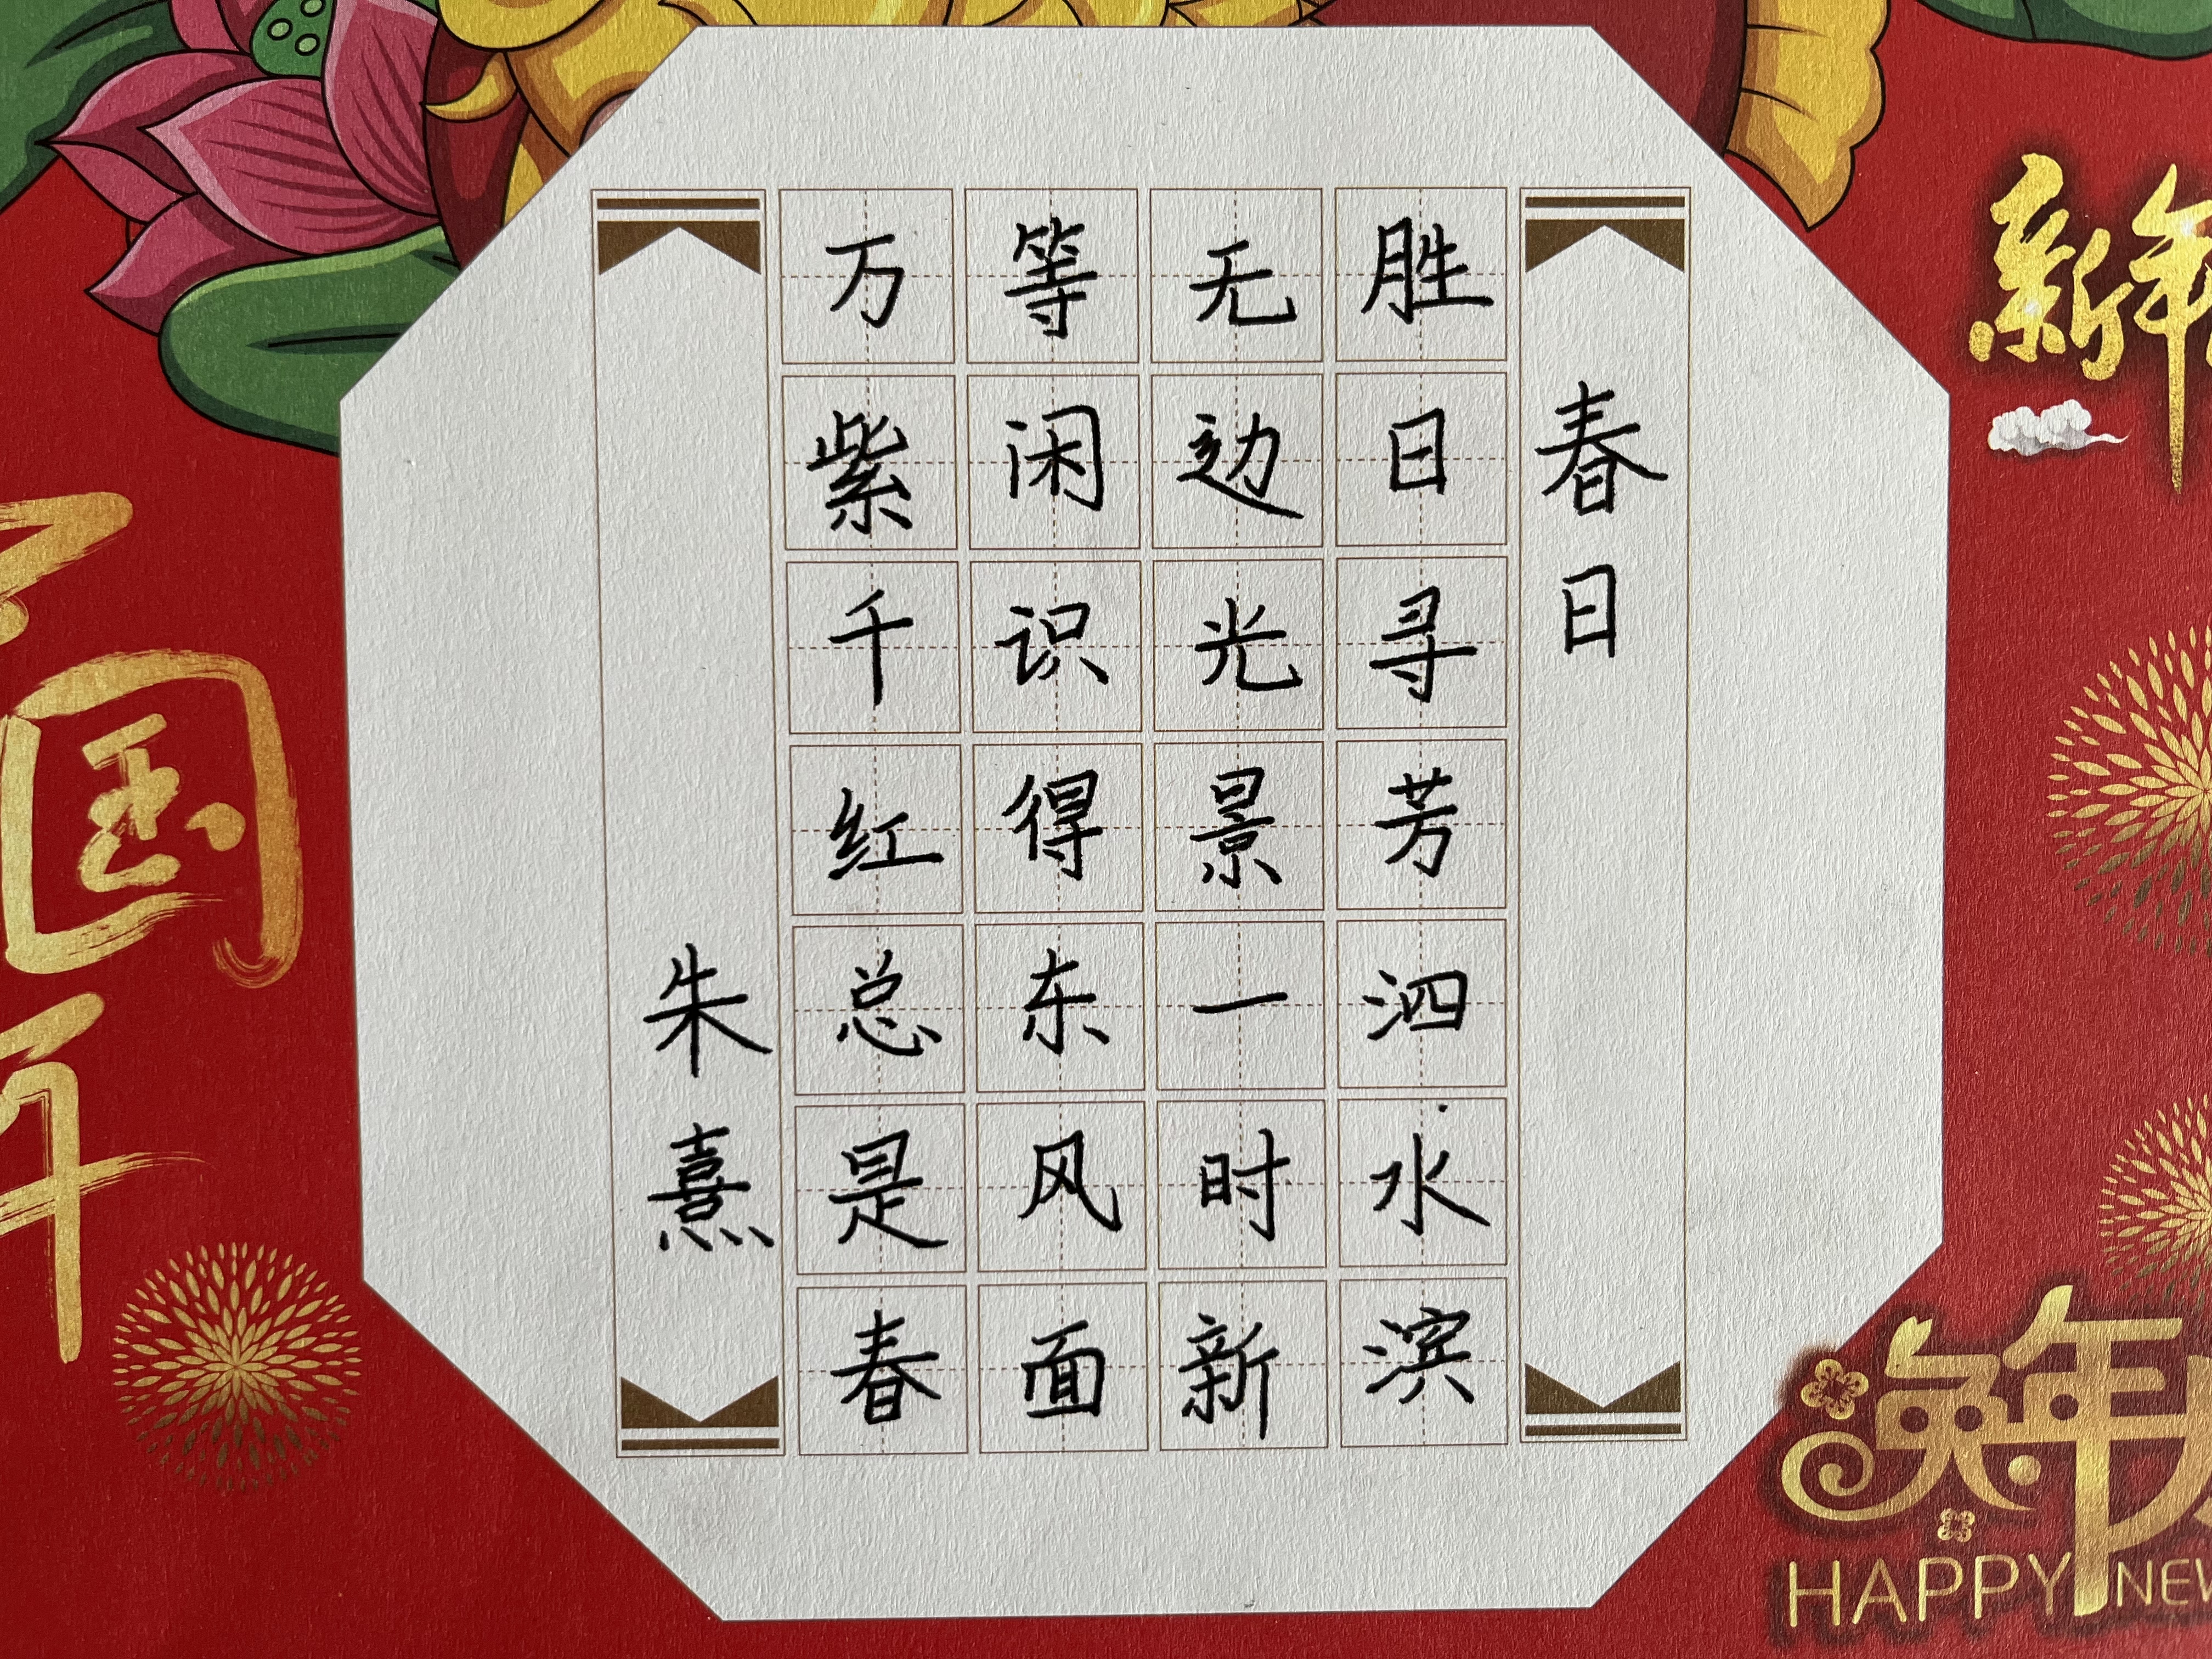 春日
胜日寻芳泗水滨
无边光景一时新
等闲识得东风面
万紫千红总是春
朱熹
新年
国
年
兔年
HAPPY NEW